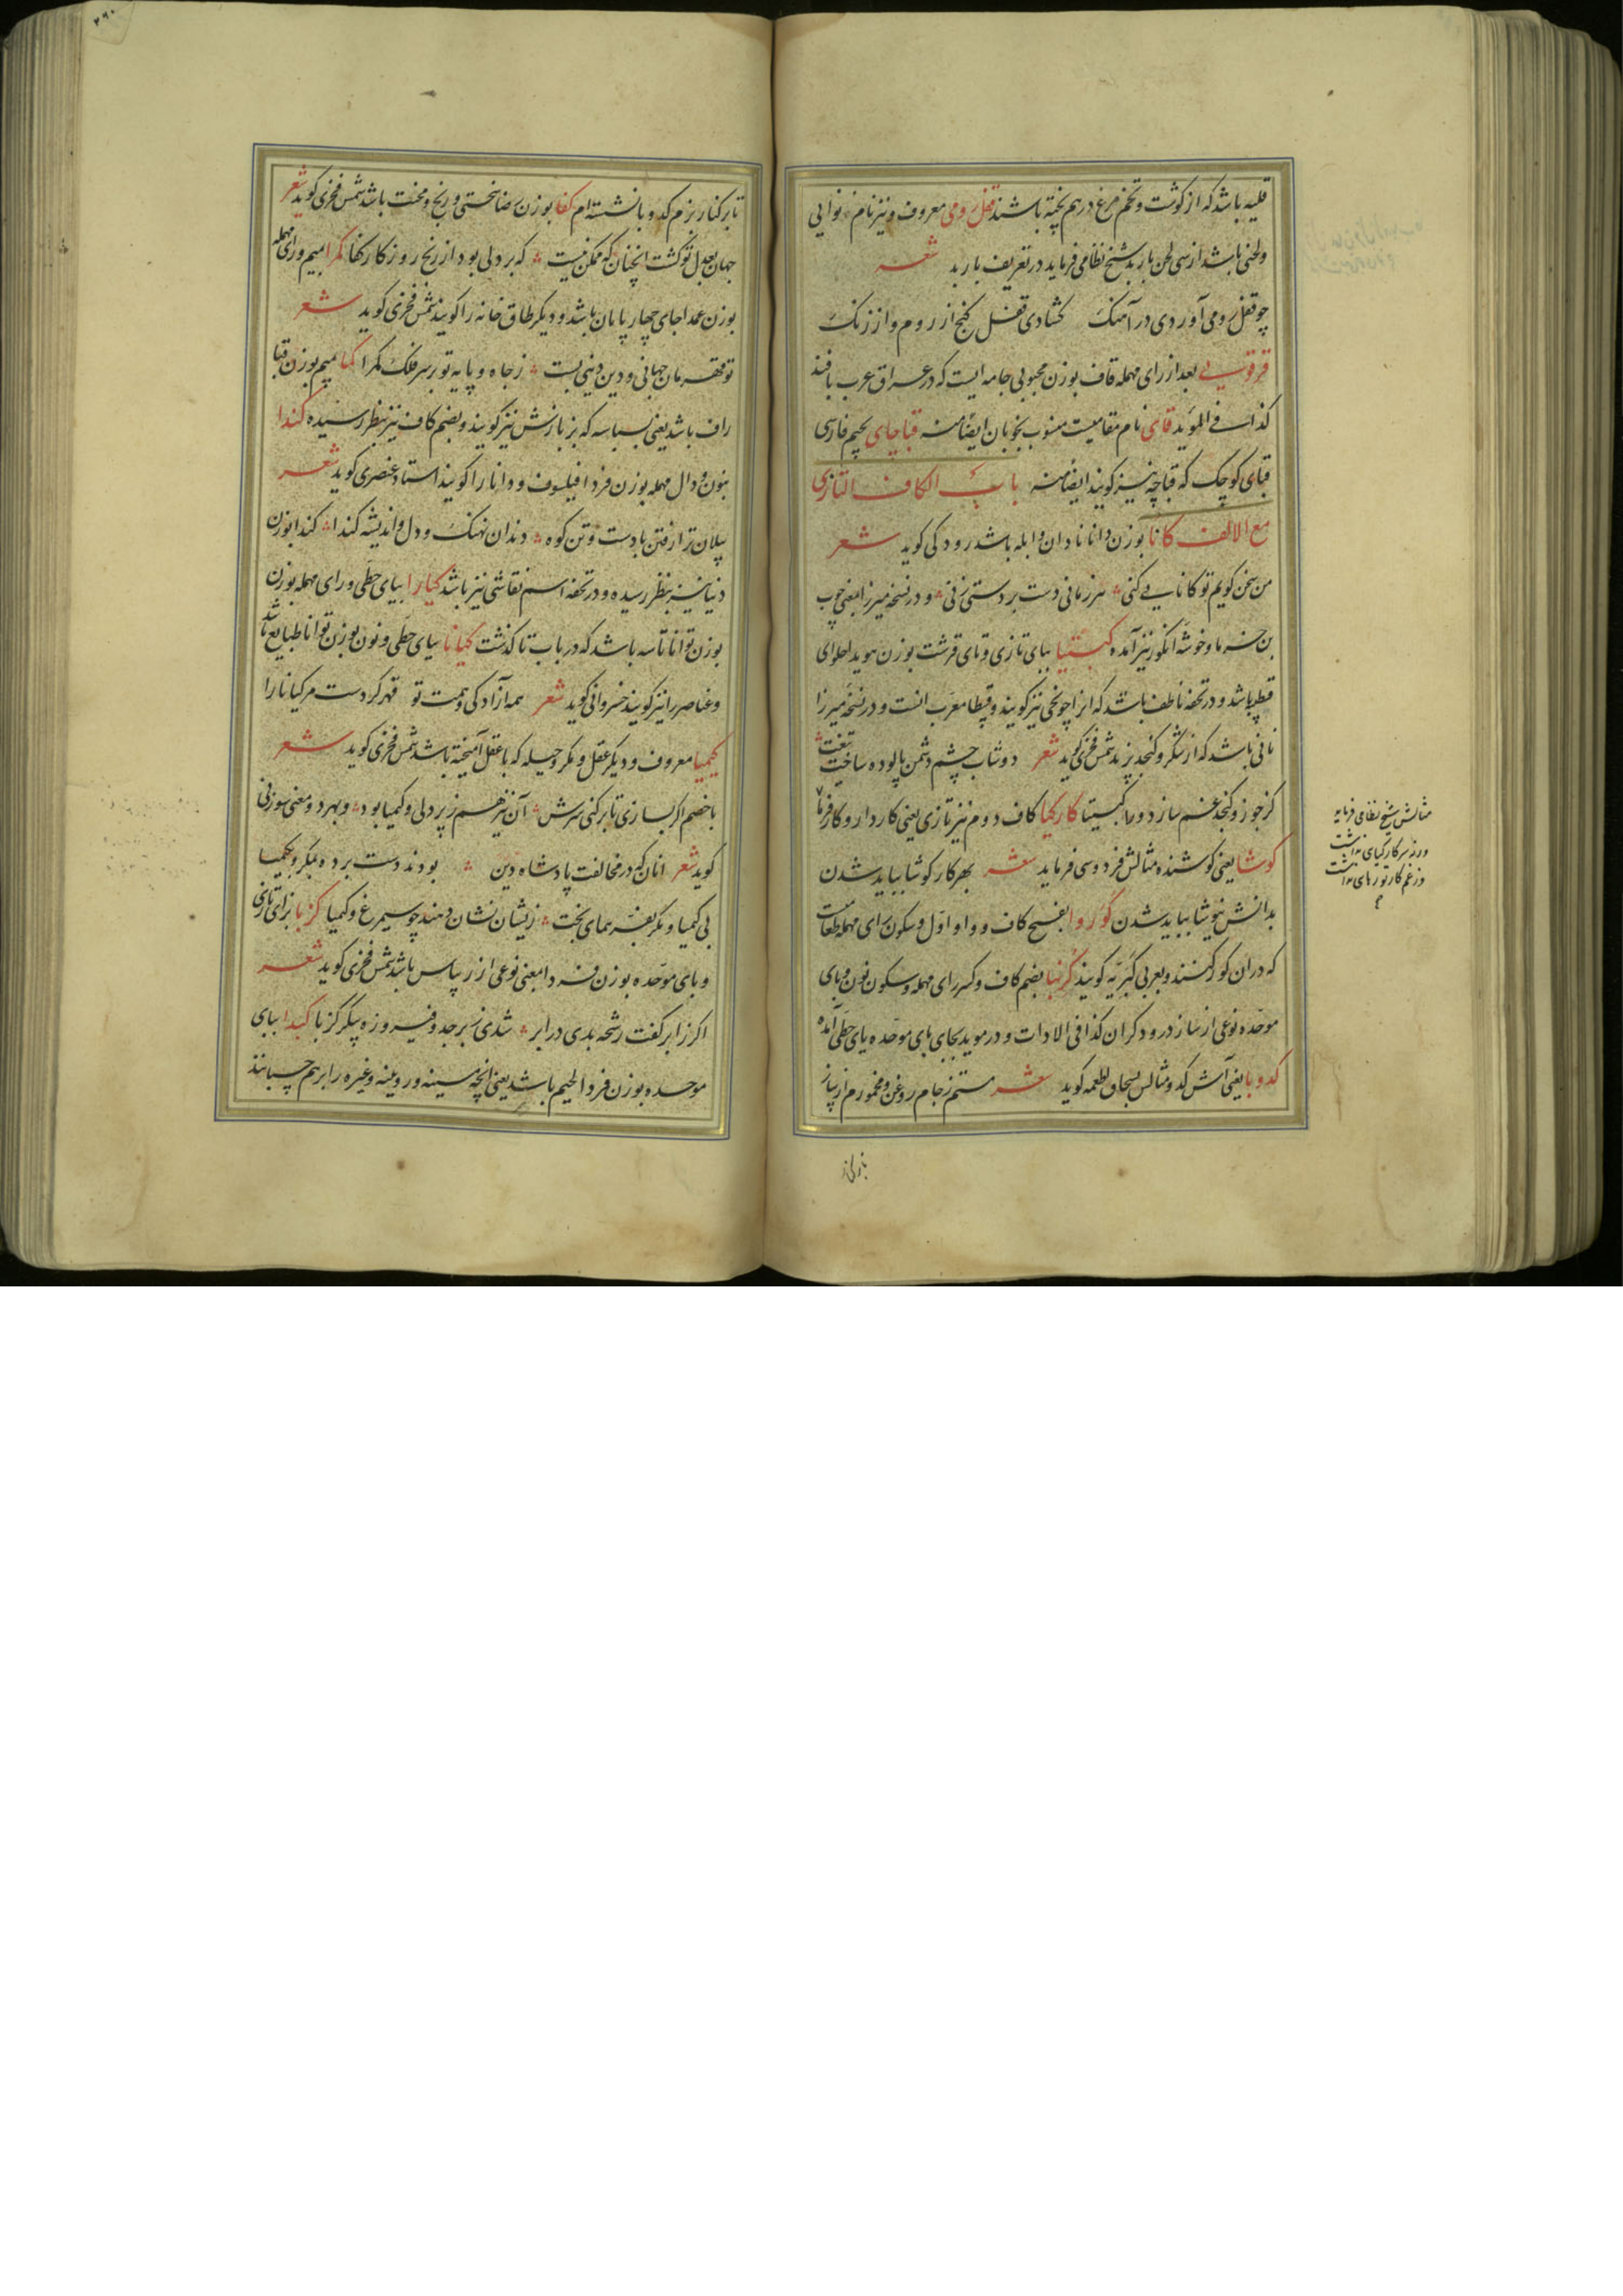 قلیه باشد که از گوشت و تخم مرغ در هم پخته باشند قفل رومی معروف و نیز نام نوایی
ولحنی باشد از سی لحن باربد شیخ نظامی فرماید در تعریف باربد شعر
چو قفل رومی آوردی در آهنک کشادی قفل کنج از روم و از زنک
بعد از رای مهمله قاف بوزن محبوبی جامه ایست که در عراق عرب بافند
کذا فی الموید قای نام مقامیست منسوب بخوبان ایضا منه قباچای بجیم فارسی
قبای کوچک که قباچه نیز کویند ایضا منه باب الکاف التازی
مع الالف کانا بوزن دانا نادان و ابله باشد رودکی کوید شعر
من سخن کویم تو کانایی کنی هر زمانی دست بر دستی زنی و در نسخه میرزا بمعنی چوب
بن خرما و خوشه انکور نیز آمده کبیتا ببای تازی و تای قرشت بوزن هویدا حلوای
باشد و در تحفه ناطف باشد که انرا نیز کویند و قبیطا معرب انست و در نسخه میرزا
نانی باشد که از شکر و کنجد پزند شمس فخری کوید شعر دوشاب چشم دشمن پالوده ساخت
کز جوز و کنجد غم سازد ورا کبیتا کارکیا کاف دوم نیز تازی یعنی کاردار و کارفرما
کوشا یعنی کوشنده مثالش فردوسی فرماید شعر بهر کار کوشا بباید شدن
بدانش نیوشا بباید شدن کوروا بفتح کاف و واو اول و سکون رای مهمله طعامیست
که در ان کور کنند و بعربی کبریه کویند کرنبا بضم کاف و کسر رای مهمله و سکون نون و بای
موحده نوعی از ساز درودکران کذا فی الادات و در موید بجای بای موحده یای حطی آمده
کدوبا یعنی آش کدو مثالش بسحاق اطعمه کوید شعر مستم ز جام روغن و مخمورم از پیاز
مثالش شیخ نظامی فرماید
تا بر کنار بزم کدوبا نشسته ام کفا بوزن صفا سختی و رنج و محنت باشد شمس فخری کوید شعر
جهان بعدل تو کشت انچنان که ممکن نیست که بر دلی بود از رنج روزکار کفا کمرا بمیم و رای مهمله
بوزن عمدا جای چهارپایان باشد و دیکر طاق خانه را کویند شمس فخری کوید شعر
تو قهرمان جهانی و دین ز جاه و پایه تو بر سر فلک کمرا کما بمیم بوزن قبا
راف باشد یعنی بسباسه که بزبازش نیز کویند و بضم کاف نیز بنظر رسیده کندا
بنون و دال مهمله بوزن فردا فیلسوف و دانا را کویند استاد عنصری کوید شعر
پیلان تو از رفتن بادست و تن کوه دندان نهنک و دل و اندیشه کندا کندا بوزن
دنیا نیز بنظر رسیده و در تحفه اسم نقاشی نیز باشد کیارا بیای حطی و رای مهمله بوزن
بوزن توانا تاسه باشد که در باب تا کذشت کیانا بیای حطی و نون بوزن توانا طبایع باشد
و عناصر را نیز کویند خسروانی کوید شعر همه آزادکی همت تو قهر کردست مر کیانا را
کیمیا معروف و دیکر عقل و مکر و حیله که با عقل آمیخته باشد شمس فخری کوید شعر
با خصم اکر بسازی تا بر کنی سرش آن نیز هم ز پردلی و کیمیا بود و بهر دو معنی سوزنی
کوید شعر انان که در مخالفت پادشاه دین بودند دست برده بمکر و بکیمیا
بی کیمیا و مکر بفر همای بخت زیشان نشان دهند چو سیمرغ و کیمیا کزبا بزای تازی
و بای موحده بوزن فردا بمعنی نوعی از ریباس باشد شمس فخری کوید شعر
اکر ز ابر کفت رشحه بدی در ابر شدی زبرجد و فیروزه پیکر کزبا کبدا ببای
موحده بوزن فردا لحیم باشد یعنی انچه مسینه و رویینه و غیره را بر هم چسبانند